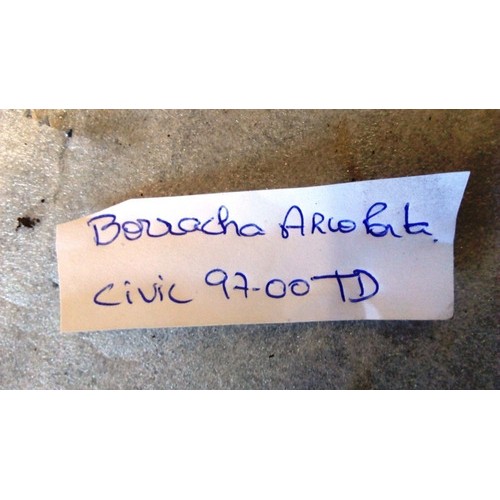 Borracha Arco Porta
Civic 97-00 TD